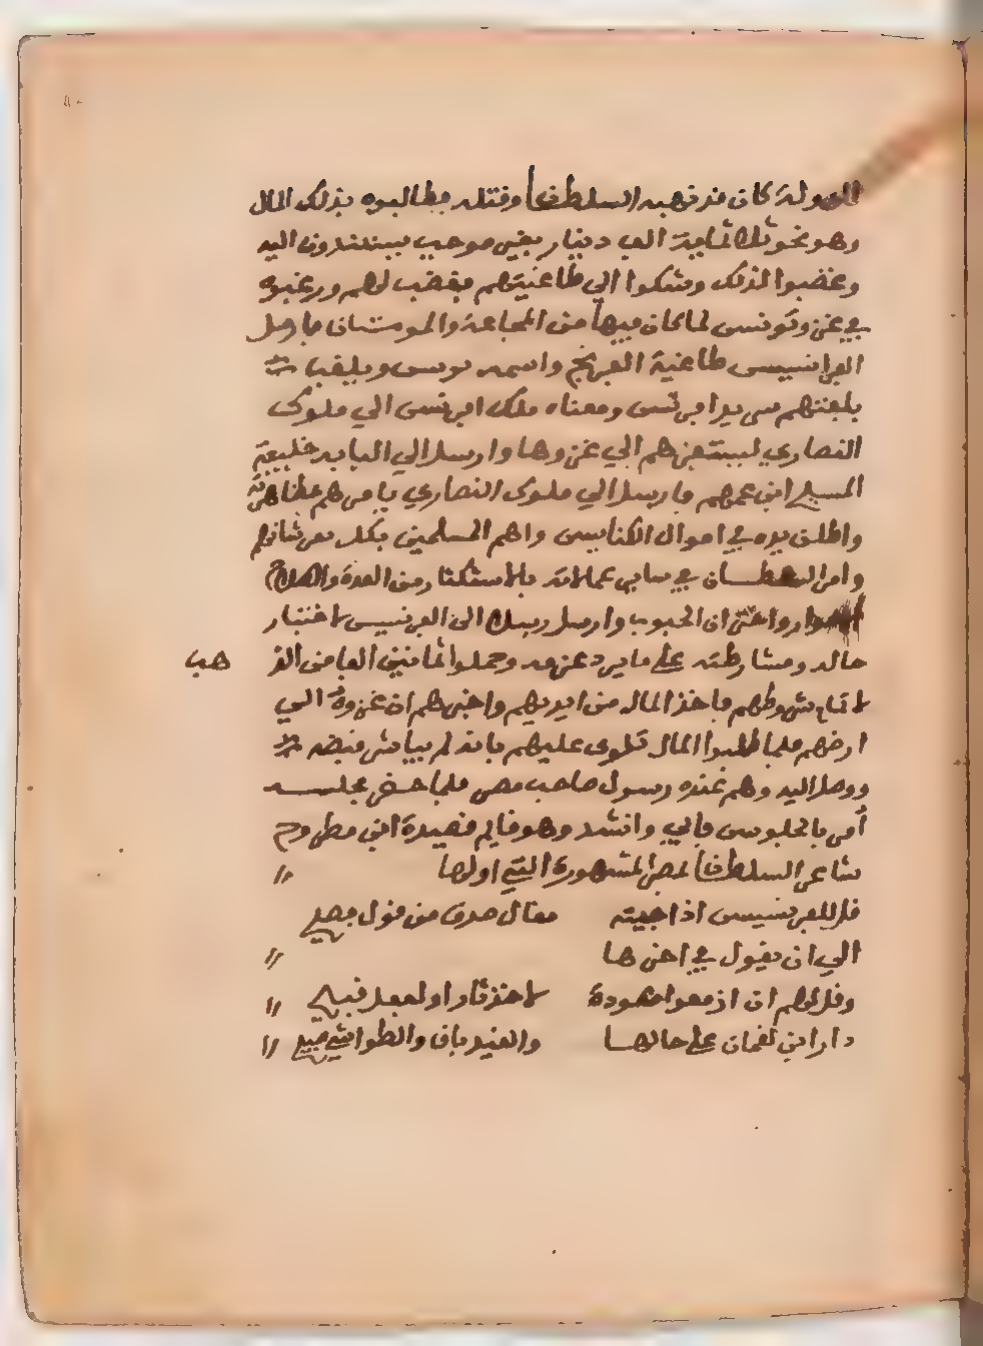 الدولة كان قد نهبه السلطان وقتله فطالبوه بذلك المال
وهو نحو ثلاثماية الف دينار بغير موجب يستندون اليه
وغضبوا لذلك وشكوا الي طاغيتهم فغضب لهم ورغبوه
في غزو تونس لما كان فيها من المجاعة والموتان فارسل
الفرانسيس طاغية الافرنج واسمه لويس ويلقب
بلغتهم ريدا فرنس ومعناه ملك افرنس الي ملوك
النصاري ليستنفرهم الي غزوها وارسل الي البابه خليفة
المسيح بزعمهم فارسل الي ملوك النصاري يامرهم بمظاهرته
واطلق يده في اموال الكنايس واهم المسلمين بكل بعى شانهم
وامر السلطان في ساير عمالاته بالاستكثار من العدة
واختزان الحبوب وارسل رسله الى الفرنسيس لاختبار
حاله ومشارطته على ما يرد عزمه وحملوا ثمانين الفا من الذ هب
لاتمام شروطهم فاخذ المال من ايديهم واخبرهم ان غزوه الي
ارضهم فلما طلبوا المال تلوى عليهم بانه لم يباشر قبضه
ووصل اليه وهم عنده رسول صاحب مصر فلما حضر مجلسه
أمر بالجلوس فابي وانشد وهو قايم قصيدة ابن مطروح
شاعر السلطان بمصر المشهورة التي اولها //
قل للفرنسيس اذا جيته مقال صدق من قول فصيح
الي ان يقول في اخرها //
وقل لهم ان ازمعوا عودة لاخذ ثار او لفعل قبيح //
دار ابن لقمان على حالها والقيد باق والطواشي صبيح //